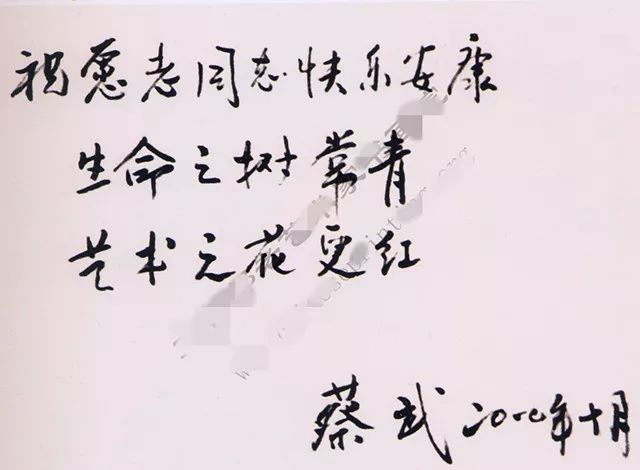 祝愿老同志快乐安康
生命之树常青
艺术之花更红
蔡武 二〇一〇年十月